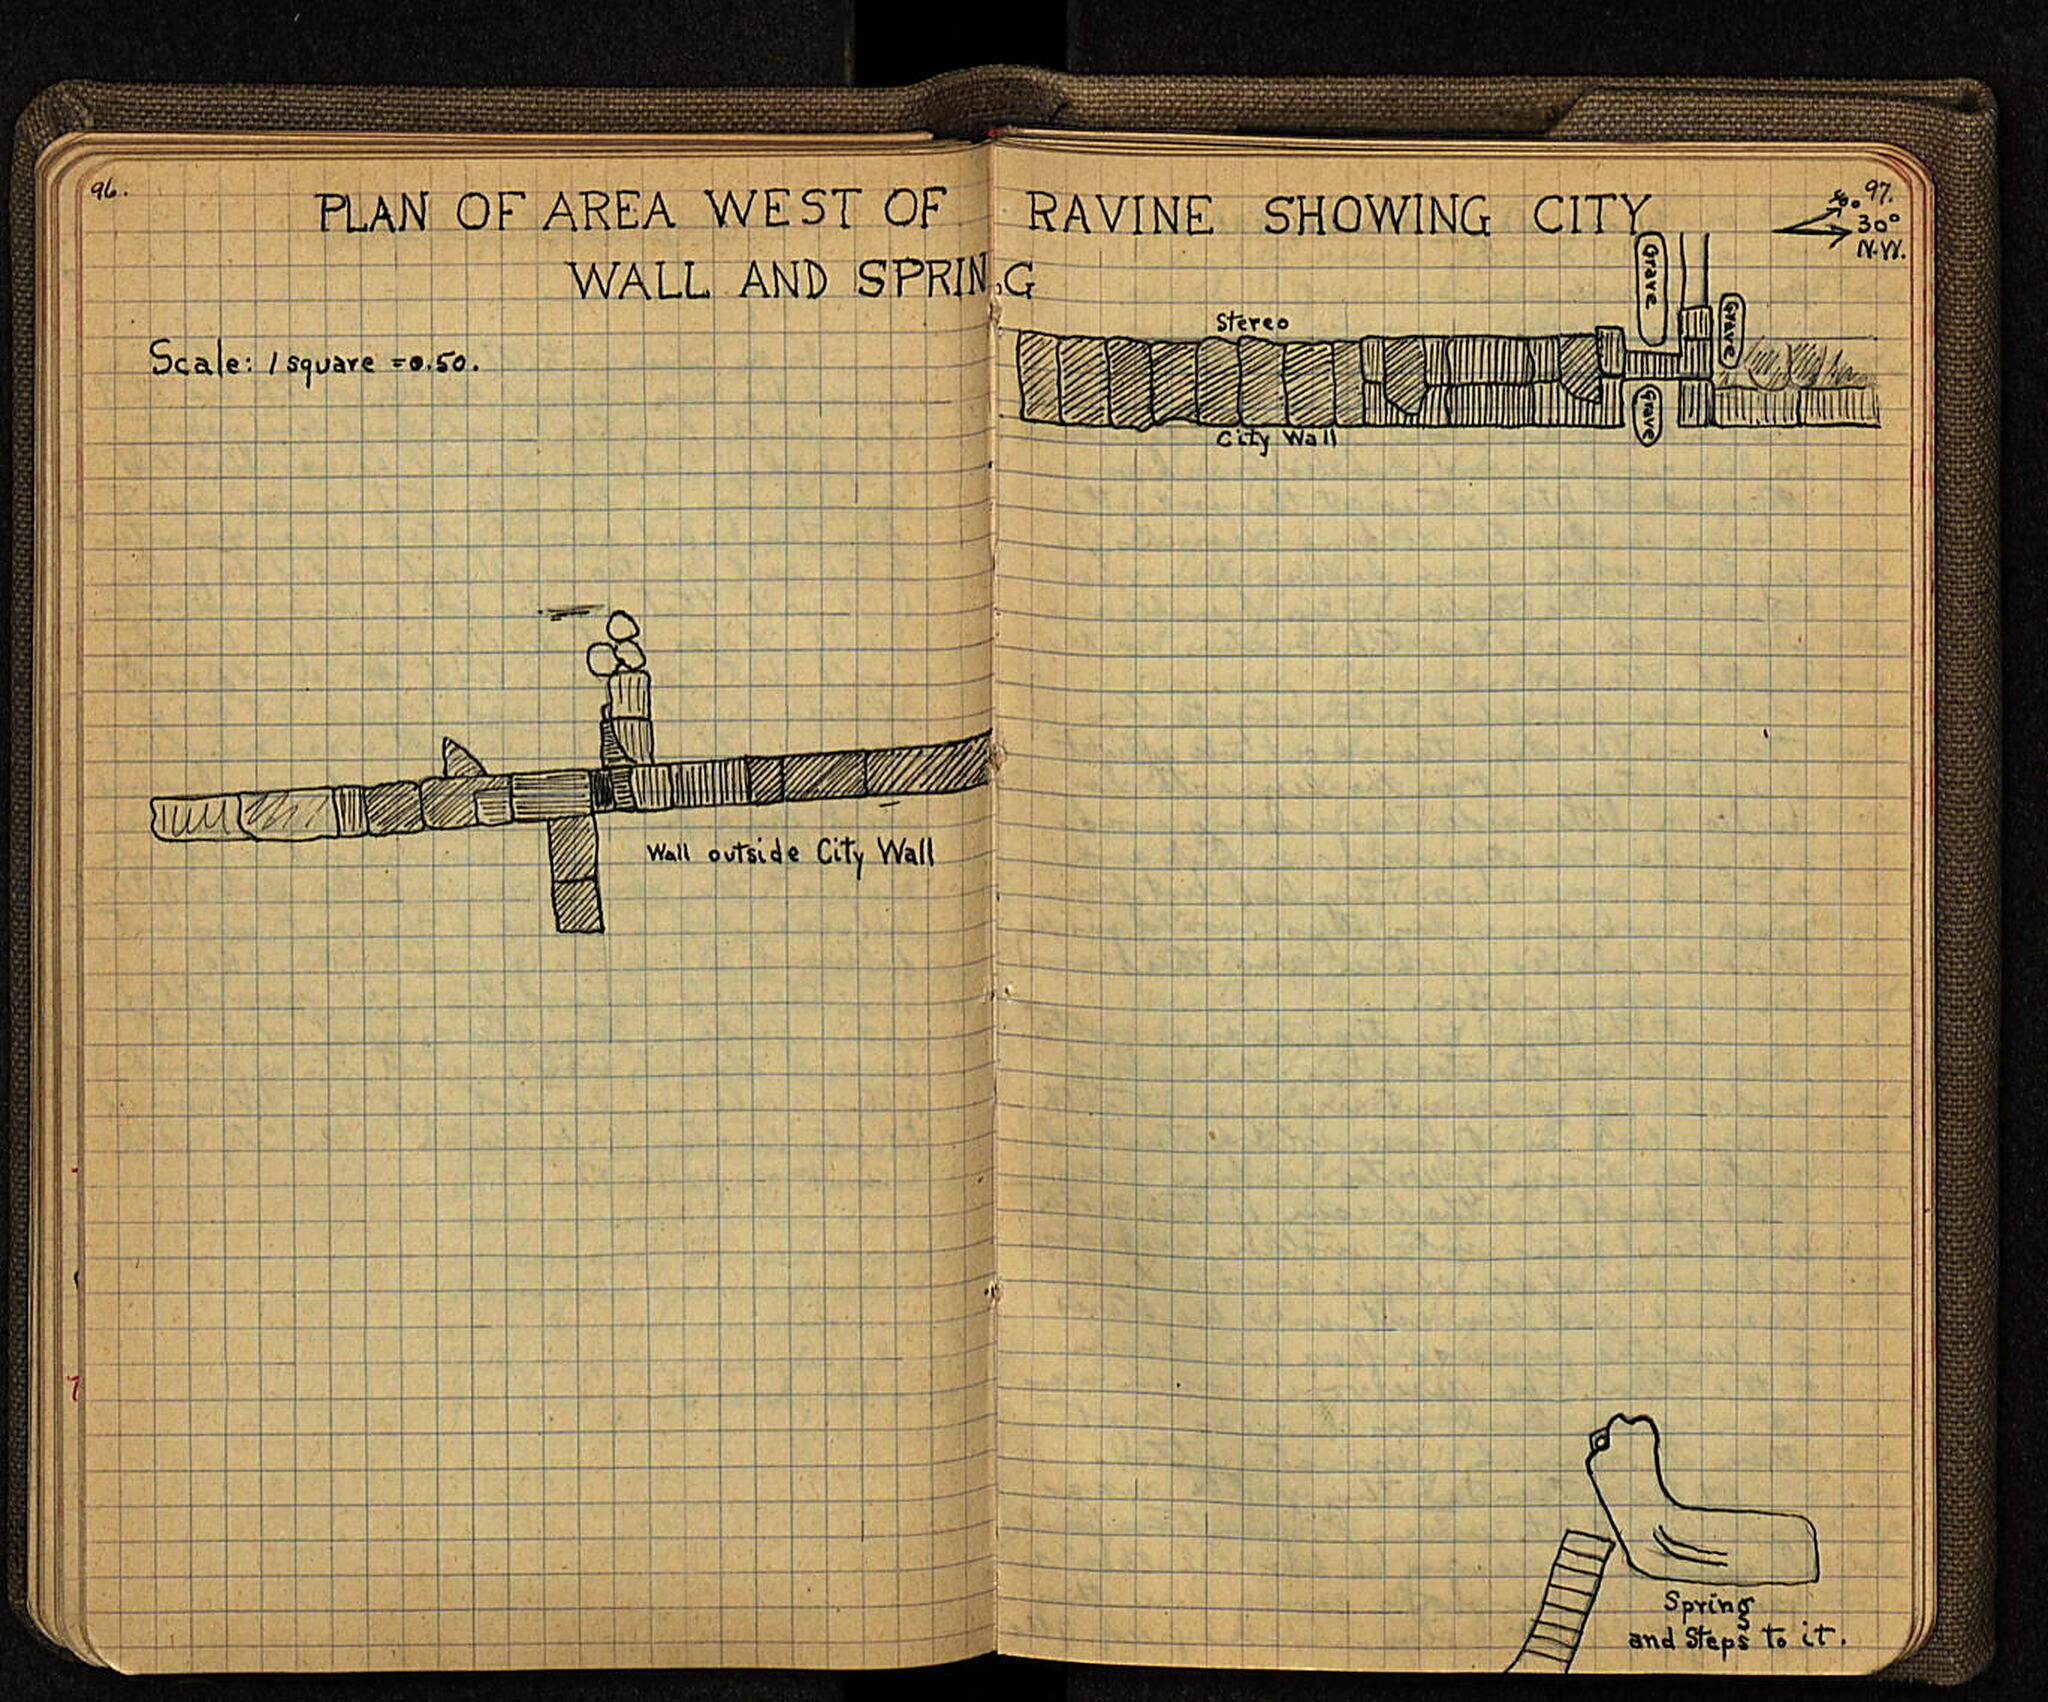 96.
97.
PLAN OF AREA WEST OF RAVINE SHOWING CITY
WALL AND SPRING
30°
N.W.
Scale: 1 square = 0.50.
Grave
Grave
Stereo
Grave
City Wall
Wall outside City Wall
Spring
and Steps to it.